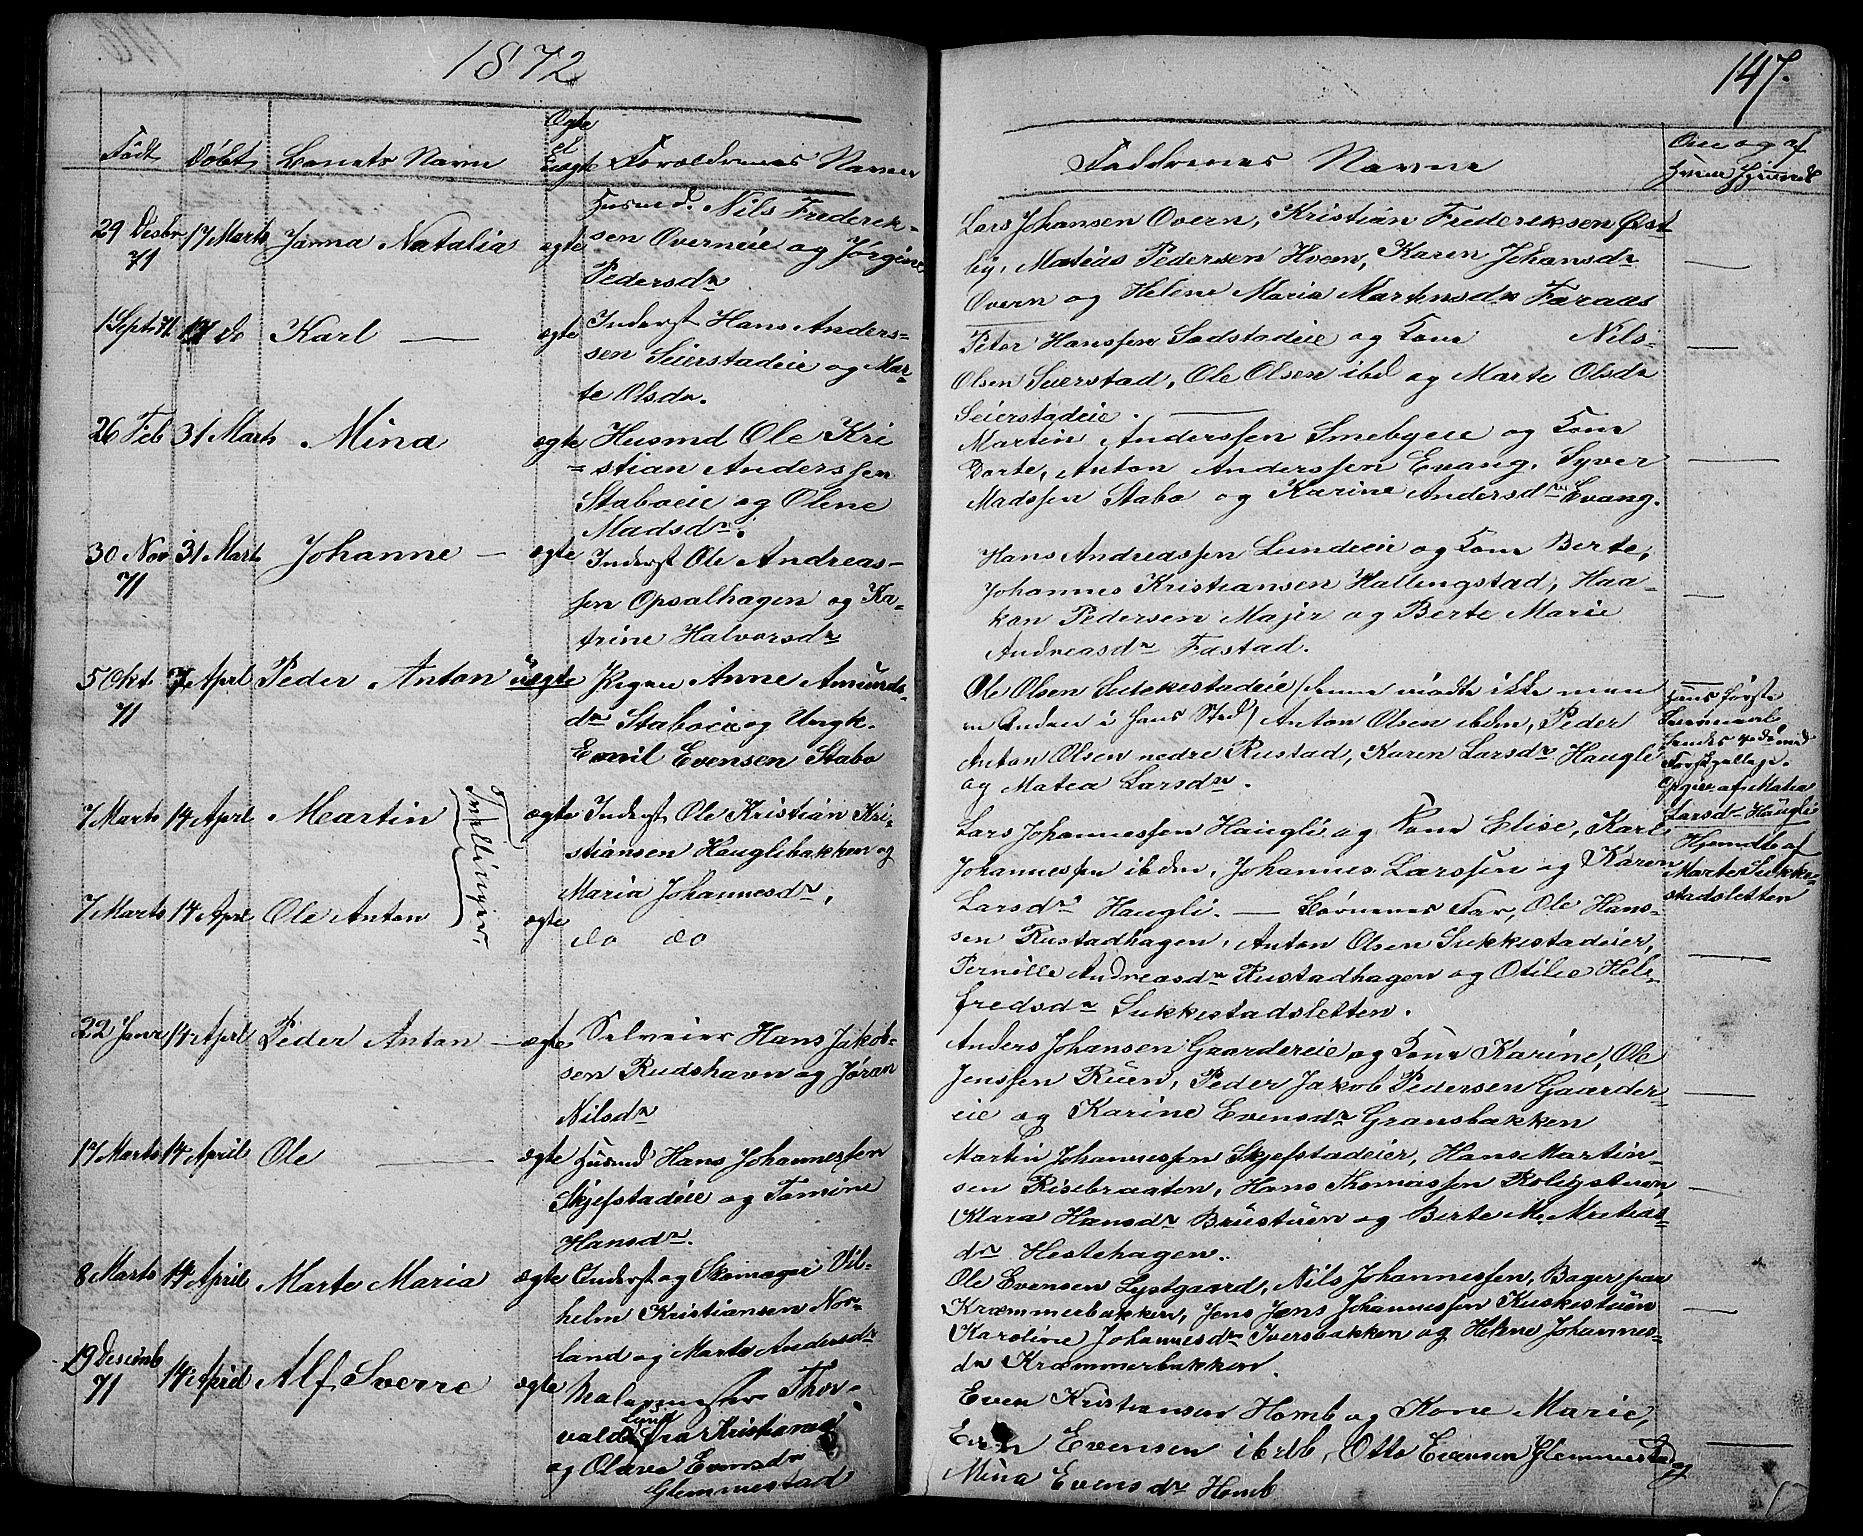 1872
147.
Født Døbt Barnets Navn Ægte el uægte Forældrenes Navne
29 Desbr 71 17 Marts Janna Natalia ægte Husmd. Nils Frederik-
sen Overneie og Jørgine
Pedersdr
1 Sept 71 17 do Karl — ægte Inderst Hans Anders-
sen Seierstadeie og Mar-
te Olsdr.
26 Feb 31 Marts Mina ægte Husmd Ole Kri
=stian Anderssen
Staboeie og Olene
Madsdr.
30 Nov 71 31 Mart Johanne — ægte Inderst Ole Andreas-
sen Opsalhagen og Ka-
trine Halvorsdr
5 Okt 71 7 April Peder Anton uægte Pigen Anne Amunds-
dr Staboeie og Ungk.
Emil Evensen Stabo
7 Marts 14 Aprl Martin Tvillinger. ægte Inderst Ole Kristian Kri-
stiansen Hauglibakken og
Maria Johannesdr,
7 Marts 14 Aprl Ole Anton ægte do do
22 Janr 14 Aprl Peder Anton — ægte Selveier Hans Jakob-
sen Rudshavn og Jøran
Nilsdr
17 Marts 14 April Ole — ægte Husmd Hans Johannessen
Skjefstadeie og Tomine
Hansdr.
8 Marts 14 April Marte Maria ægte Inderst og Skomager Vil-
helm Kristiansen Nor-
land og Marte Andersdr
19 Desemb 71 14 April Alf Sverre ægte Malermester Thor-
vald Lund fra Kristiania
og Olava Evensdr
Glemmestad
Faddrenes Navne
Om og af
Hvem Hjemdt
Lars Johansen Overn, Kristian Frederiksen Øst-
by, Matias Pedersen Hveem, Karen Johansdr
Overn og Helene Maria Martinsdr Faraas —
Peter Hanssen Sodstadeie og Kone Nils
Olsen Seierstad, Ole Olsen ibd og Marte Olsdr
Seierstadeie. —
Martin Anderssen Smebyeie og Kone
Dorte, Anton Anderssen Evang, Syver
Madssen Stabo og Karine Andersdr Evang. —
Hans Andreassen Lundeeie og Kone Berte,
Johannes Kristiansen Hallingstad, Haa-
kon Pedersen Majer og Berte Marie
Andreasdr Fastad. —
Ole Olsen Sukkestadeie (denne mødte ikke men
en Anden i hans Sted) Anton Olsen ibdm, Peder
Anton Olsen nedre Rustad, Karen Larsdr Haugli
og Matea Larsdr.
Hans første
Leiermaal
hendes 4de med
Forskjellige.
Opgivet af Matea
Larsdr Haugli
Lars Johannessen Haugli og Kone Elise, Karl
Johannessen ibdm, Johannes Larssen og Karen
Larsdr Haugli. — Børnenes Far, Ole Hans-
sen Rustadhagen, Anton Olsen Sukkestadeier,
Pernille Andreasdr Rustadhagen og Otilie Hel-
fredsdr Sukkestadsletten.
Hjemdt af
Marte Sukke-
stadsletten
—
Anders Johansen Gaardereie og Kone Karine, Ole
Jenssen Ruen, Peder Jakob Pedersen Gaarder-
eie og Karine Evensdr Gransbakken —
Martin Johannessen Skjefstadeier, Hans Martin-
sen Risebraaten, Hans Thomassen Roligstuen,
Klara Hansdr Brustuen og Berte M. Matias-
dr Hestehagen. —
Ole Evensen Lystgaard, Nils Johannessen, Bager paa
Kræmmerbakken, Jens Jens Johannessen Kuskestuen
Karoline Johannesdr Iversbakken og Helene Johannes-
dr Kræmmerbakken. —
Even Kristiansen Homb og Kone Marie,
Even Evensen ibdb, Otto Evensen Glemmestad og
Mina Evensdr Homb —